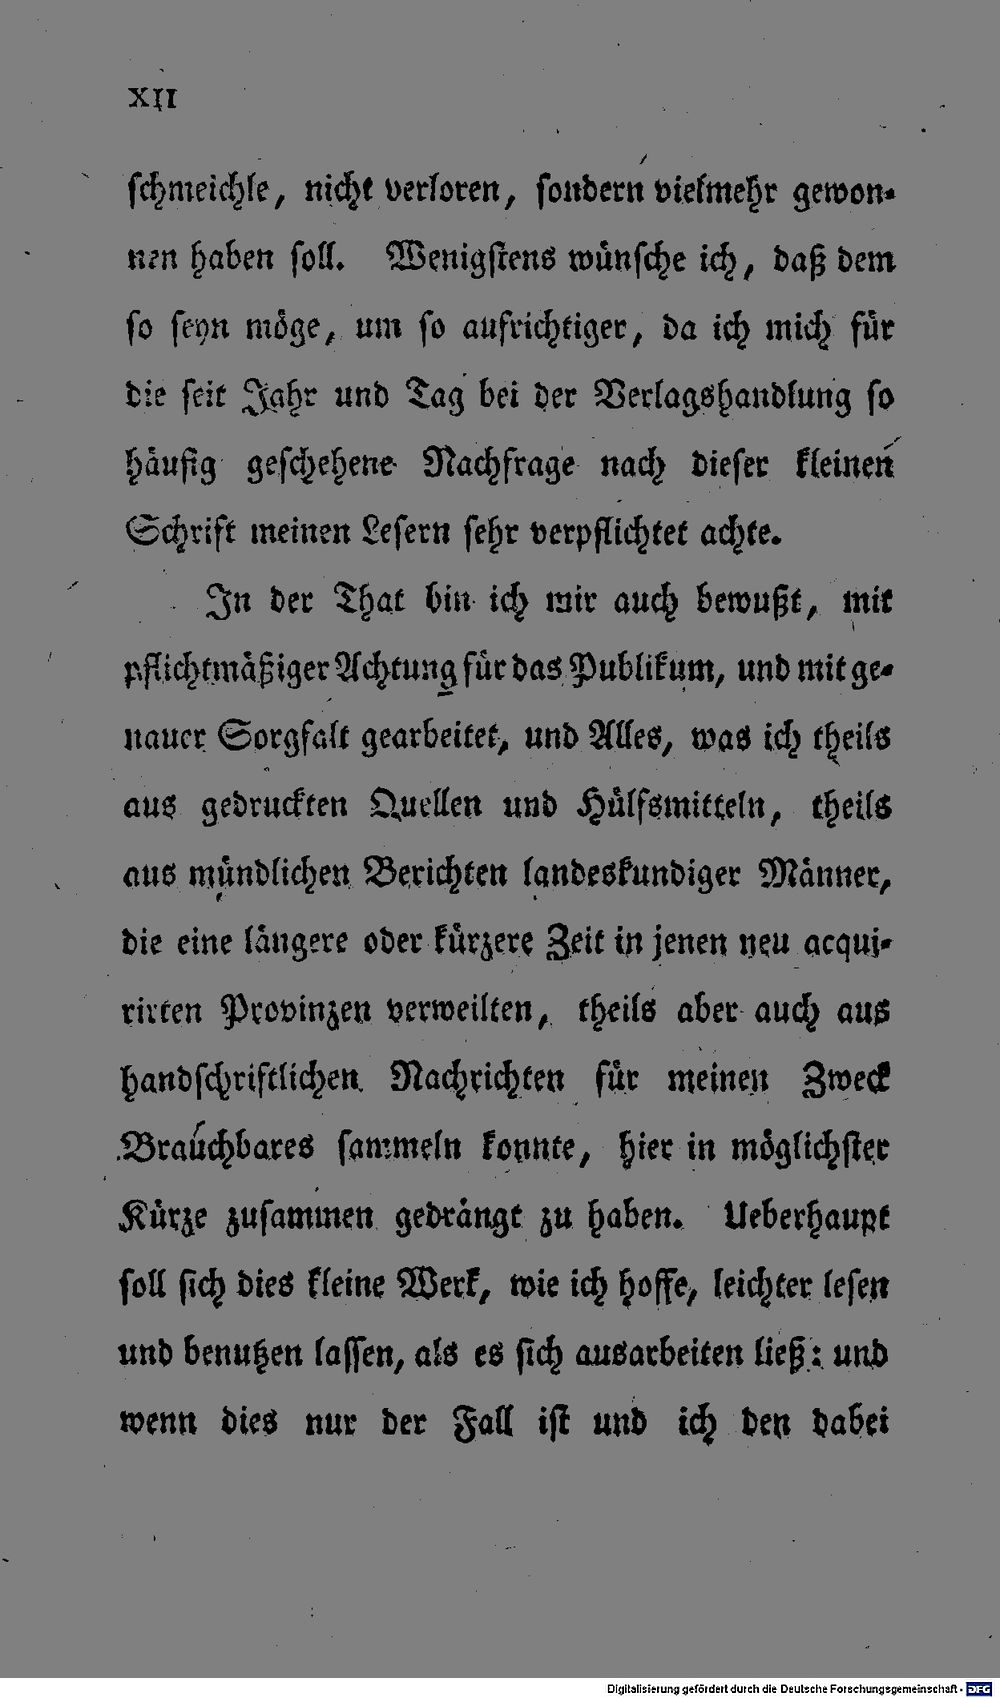 XII
schmeichle, nicht verloren, sondern vielmehr gewon-
nen haben soll. Wenigstens wünsche ich, daß dem
so seyn möge, um so aufrichtiger, da ich mich für
die seit Jahr und Tag bei der Verlagshandlung so
häufig geschehene Nachfrage nach dieser kleinen
Schrift meinen Lesern sehr verpflichtet achte.
In der That bin ich mir auch bewußt, mit
pflichtmäßiger Achtung für das Publikum, und mit ge-
nauer Sorgfalt gearbeitet, und Alles, was ich theils
aus gedruckten Quellen und Hülfsmitteln, theils
aus mündlichen Berichten landeskundiger Männer,
die eine längere oder kürzere Zeit in jenen neu acqui-
rirten Provinzen verweilten, theils aber auch aus
handschriftlichen Nachrichten für meinen Zweck
Brauchbares sammeln konnte, hier in möglichster
Kürze zusammen gedrängt zu haben. Ueberhaupt
soll sich dies kleine Werk, wie ich hoffe, leichter lesen
und benutzen lassen, als es sich ausarbeiten ließ: und
wenn dies nur der Fall ist und ich den dabei
Digitalisierung gefördert durch die Deutsche Forschungsgemeinschaft - DFG